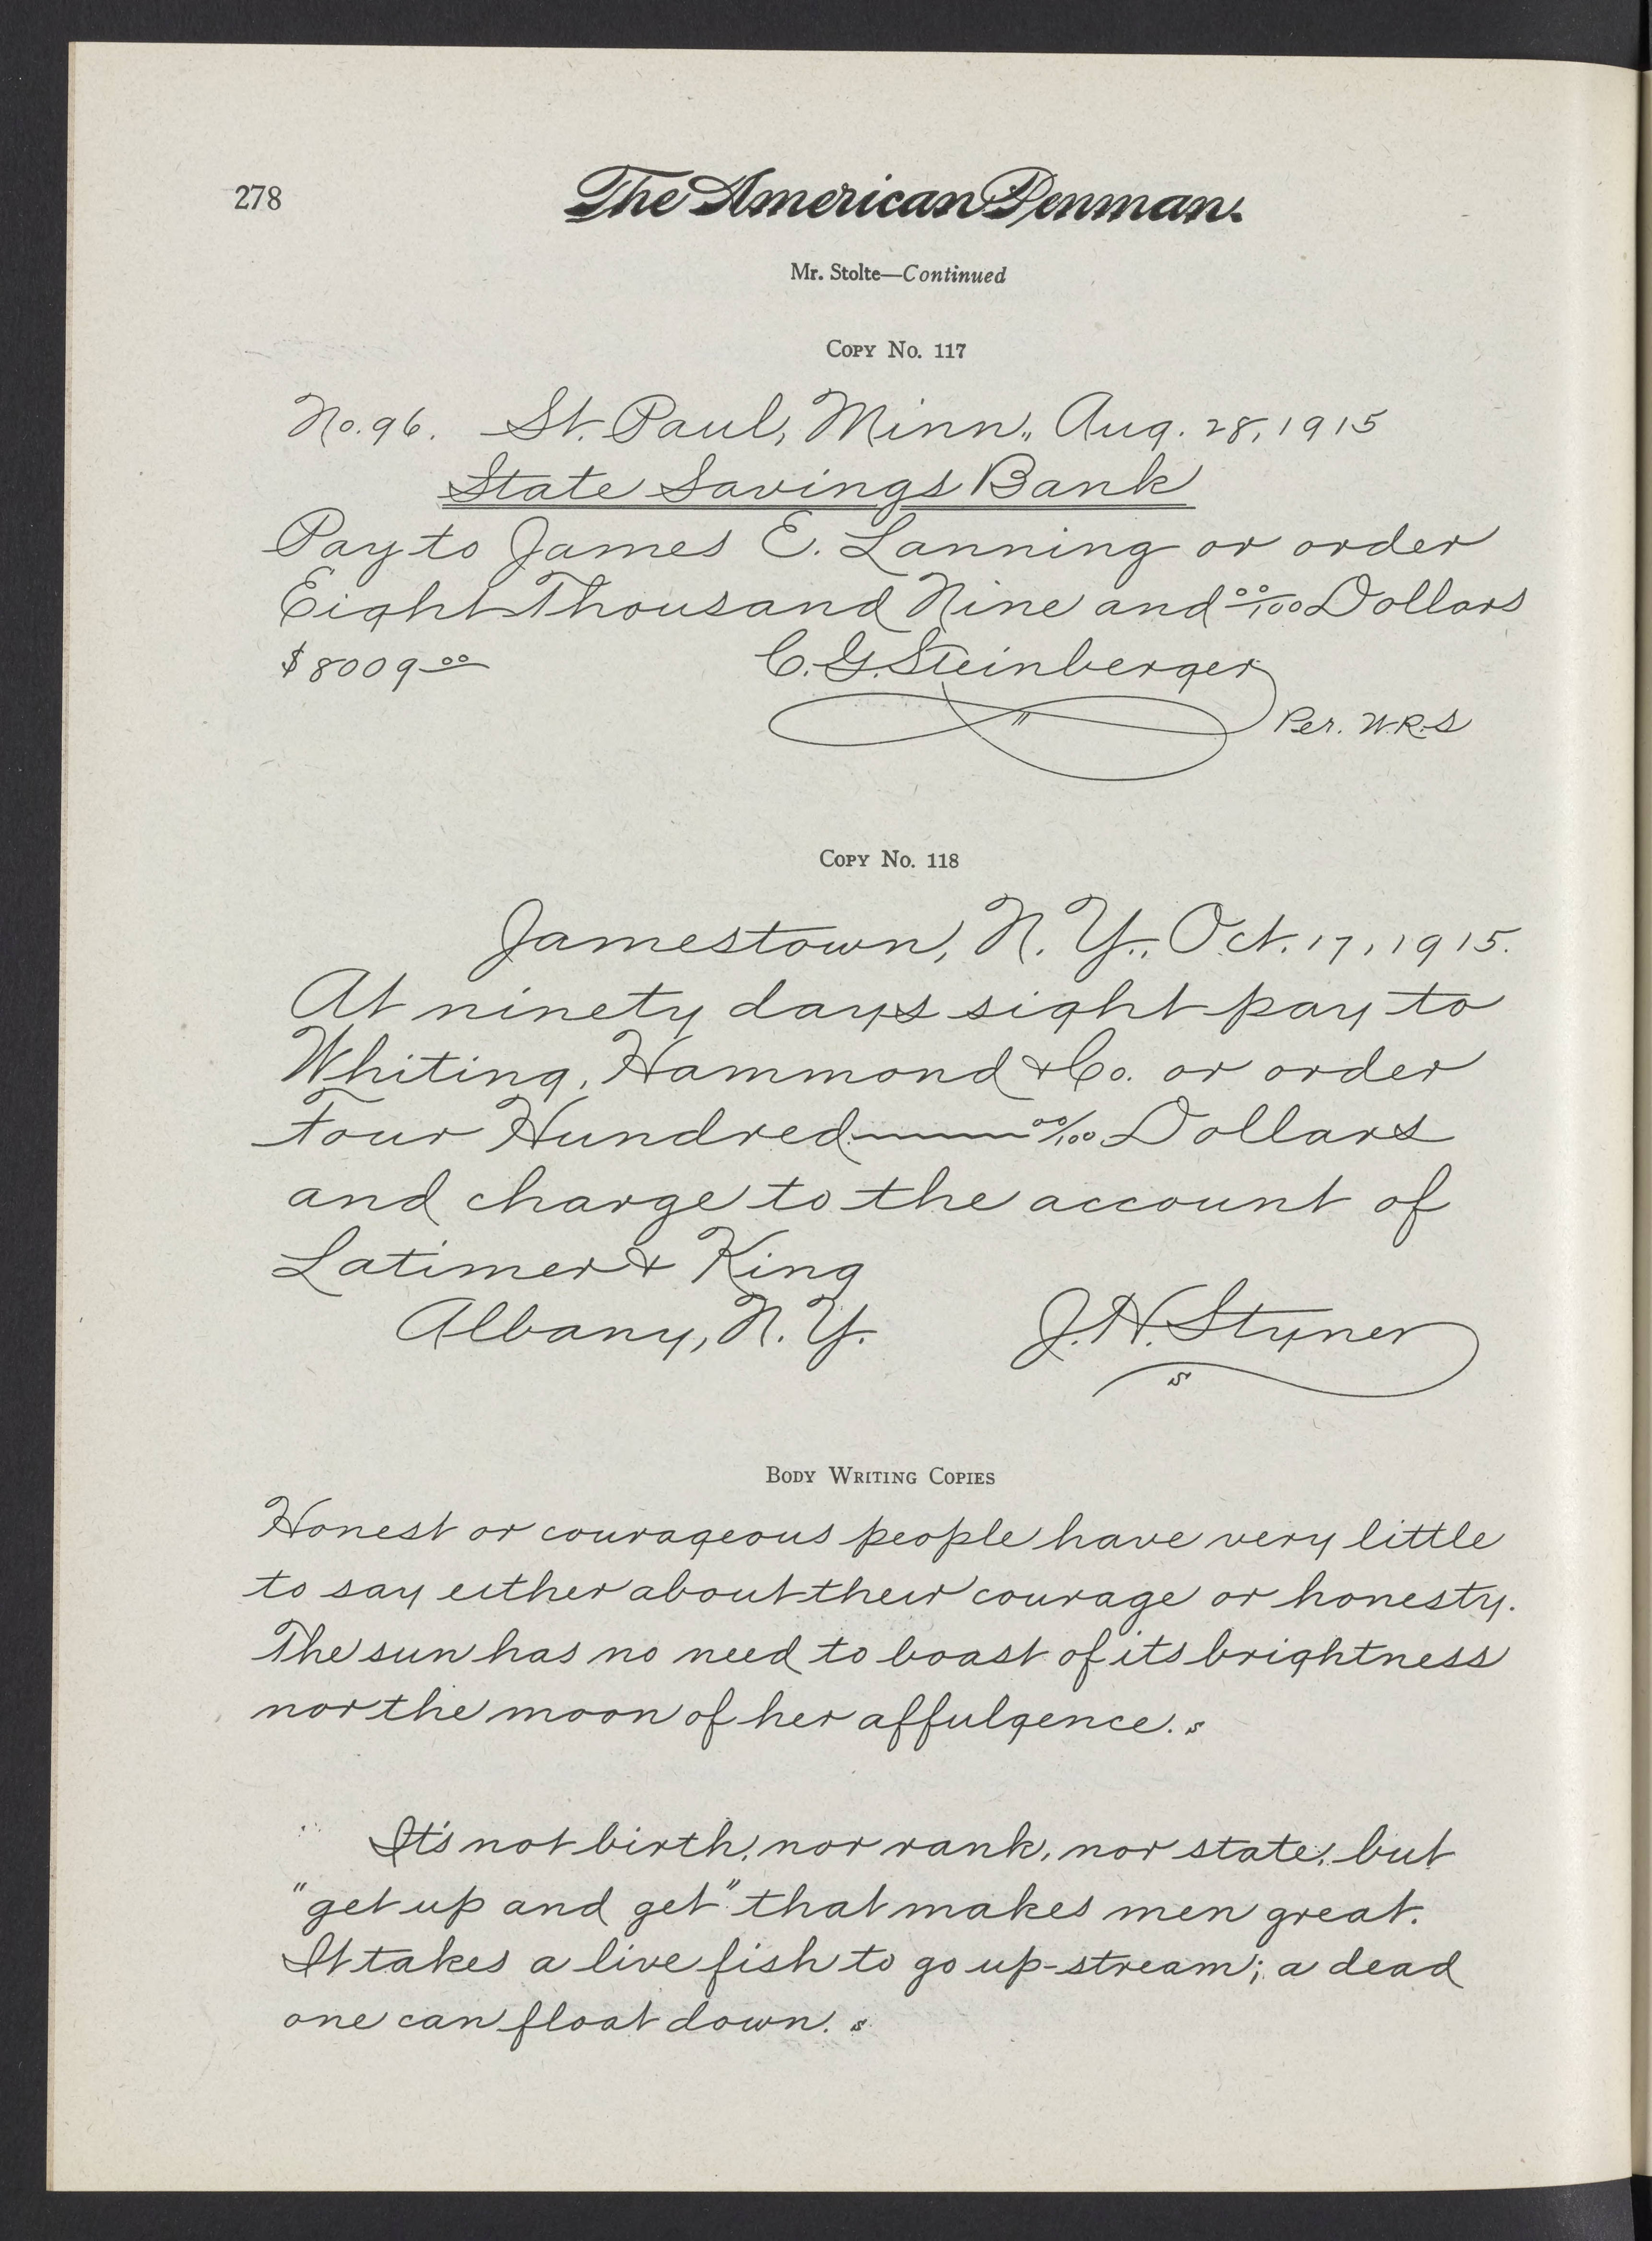 278
The American Penman.
Mr. Stolte—Continued
Copy No. 117
No. 96. St. Paul, Minn., Aug. 28, 1915
State Savings Bank
Pay to James E. Lanning or order
Eight Thousand Nine and 00/100 Dollars
$8009 00
C. G. Steinberger
Per. W.R.S
Copy No. 118
Jamestown, N. Y., Oct. 17, 1915.
At ninety days sight pay to
Whiting, Hammond & Co. or order
Four Hundred 00/100 Dollars
and charge to the account of
Latimer & King
Albany, N. Y. J. H. Styner
S
Body Writing Copies
Honest or courageous people have very little
to say either about their courage or honesty.
The sun has no need to boast of its brightness
nor the moon of her affulgence. s
It's not birth, nor rank, nor state, but
"get up and get" that makes men great.
It takes a live fish to go up-stream; a dead
one can float down. s